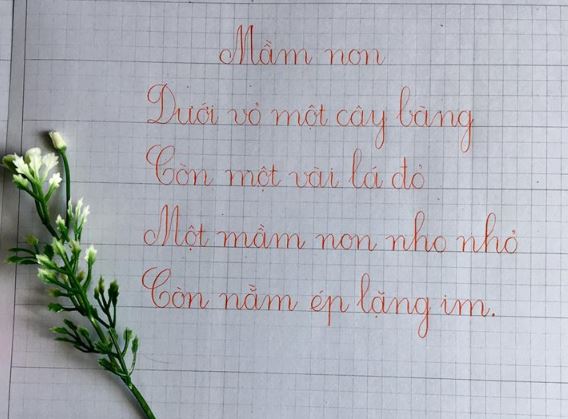 Mầm non
Dưới vỏ một cây bàng
Còn một vài lá đỏ
Một mầm non nho nhỏ
Còn nằm ép lặng im.